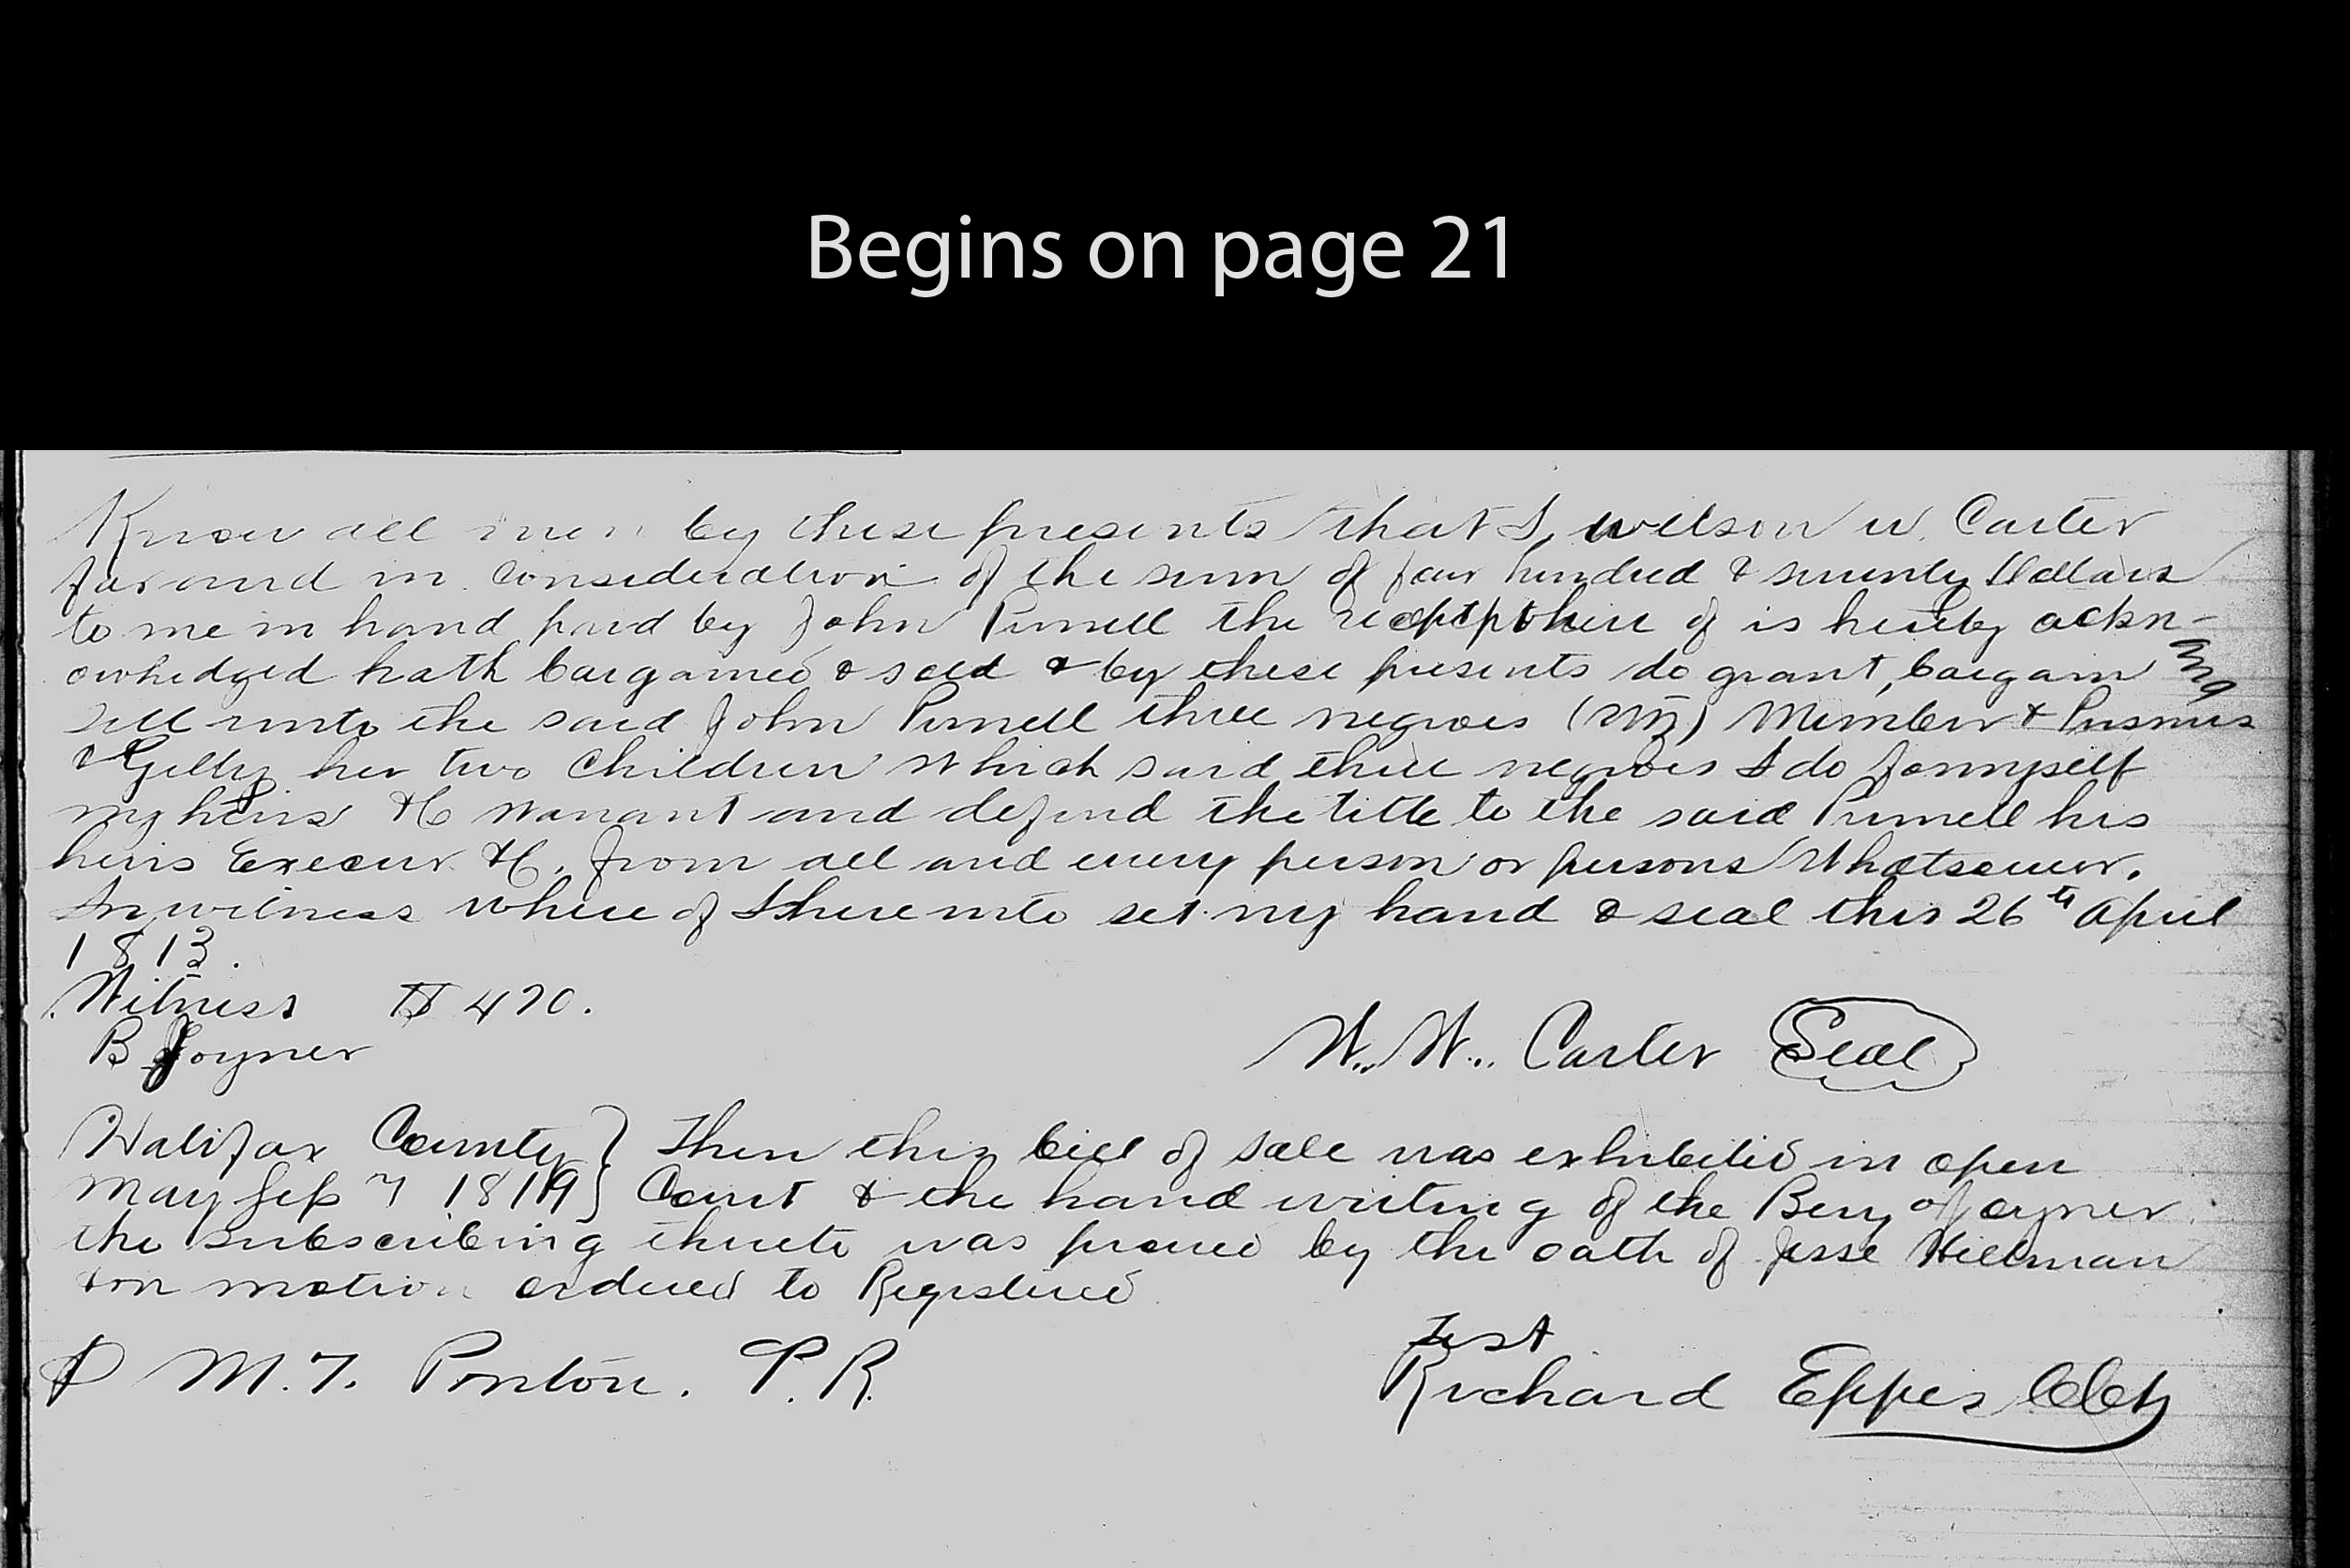 Begins on page 21
Know all men by these presents that I, Wilson W. Carter
for and in Consideration of the sum of four hundred & seventy Dollars
to me in hand paid by John Purnell the receipt where of is hereby ackn-
owledged hath bargained & sold & by these presents do grant, bargain and
sell unto the said John Purnell three negroes (viz) Member &
& Gilly her two Children which said three negroes I do for myself
my heirs &C warrant and defend the title to the said Purnell his
heirs Execur &C, from all and every person or persons Whatsoever.
In witness where of I here unto set my hand & seal this 26th April
1813.
Witness $ 470.
B Joyner
W. W. Carter Seal
Halifax County } Then this bill of sale was exhibited in open
May 1819 } Court & the hand writing of the Benj Joyner
the subscribing thereto was proved by the oath of Jesse Hillman
& on motion ordered to Registered
M. T. Ponton. P. R.
Test
Richard Eppes